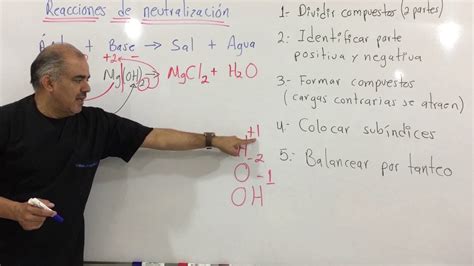 Reacciones de neutralización
+ Base → Sal + Agua
+2 -
Mg(OH)2 → MgCl2 + H2O
+1
H
-2
O
-1
OH
1- Dividir compuestos (2 partes)
2: Identificar parte
positiva y negativa
3- Formar compuestos
(cargas contrarias se atraen)
4- Colocar subíndices
5.- Balancear por tanteo